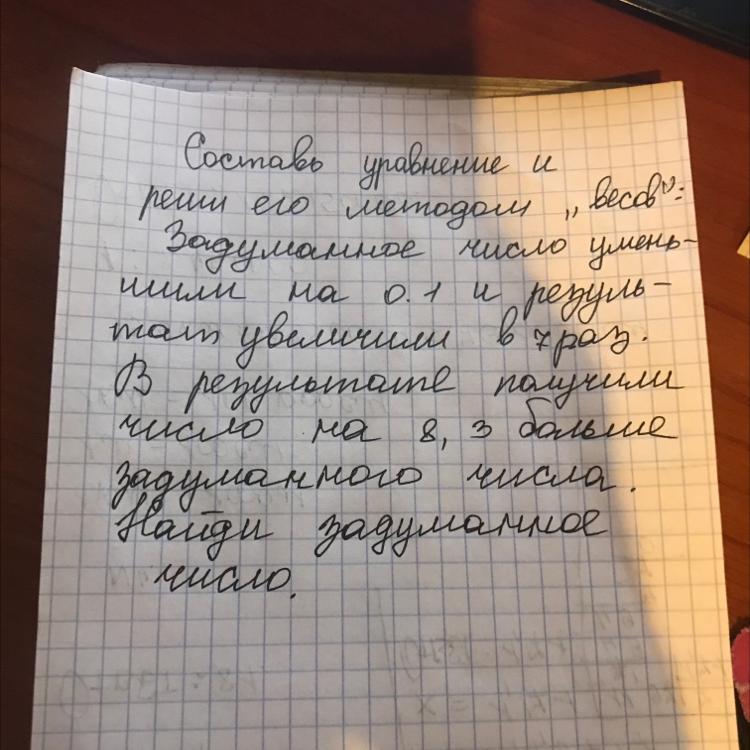 Составь уравнение и
реши его методом „весов":
Задуманное число умень-
шили на 0.1 и резуль-
тат увеличили в 7 раз.
В результате получили
число на 8,3 больше
задуманного числа.
Найди задуманное
число.